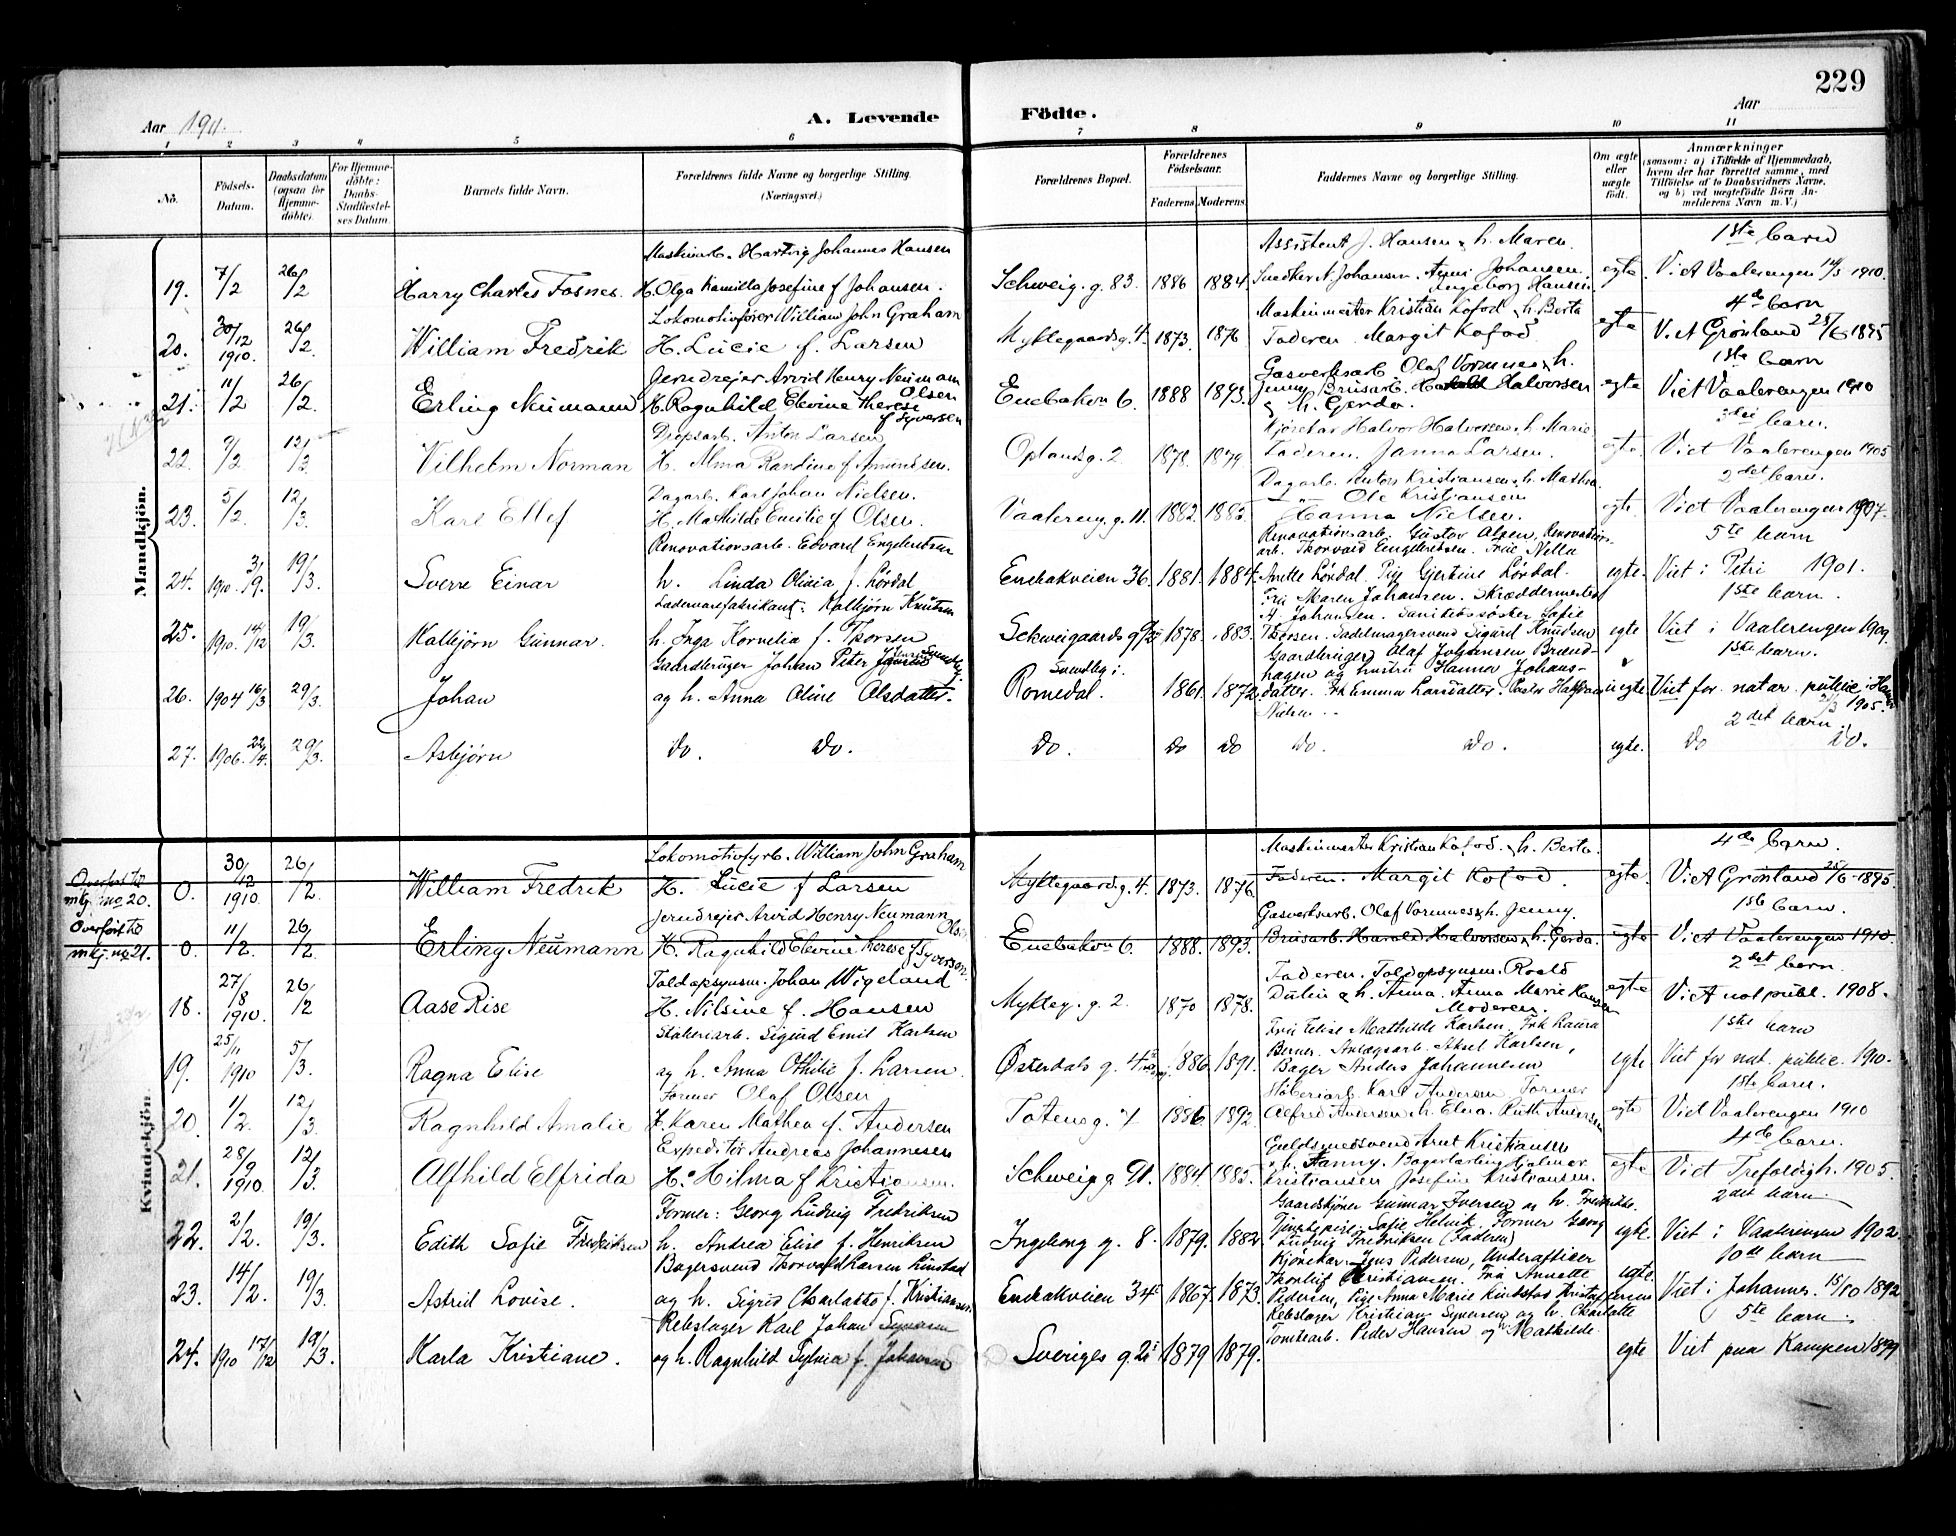 229
Aar 1911. A. Levende Födte. Aar
1 2 3 4 5 6 7 8 9 10 11
No. Födsels-Datum. Daabsdatum (ogsaa for Hjemme-döbte). For Hjemme-döbte: Daabs-Stadfæstel-ses Datum. Barnets fulde Navn. Forældrenes fulde Navne og borgerlige Stilling. (Næringsvei.) Forældrenes Bopæl. Forældrenes Födselsaar. Faderens. Moderens. Faddernes Navne og borgerlige Stilling. Om ægte eller uægte födt. Anmærkninger (saasom: a) i Tilfælde af Hjemmedaab, hvem der har forrettet samme, med Tilföielse af to Daabsvidners Navne, og b) ved uægtefödte Börn An-melderens Navn m. V.)
Mandkjön.
Maskinarb. Hartvig Johannes Hansen Assistent J. Hansen & h. Maren. 1ste barn
19. 7/2 26/2 Harry Charles Fosnes. H. Olga Kamilla Josefine f Johansen. Schweig. g. 83. 1886 1884 Snedker N. Johansen. Agnes Johansen. Ingeborg Hansen egte. V. i A Vaalerengen 1910.
Lokomotivfører William John Graham Maskinmester Kristian Kofod & h. Berta 4de barn
20. 30/12 1910. 26/2. William Fredrik H. Lucie f. Larsen Myklegaardsg. 4. 1873. 1876 Faderen Margit Kofod egte V. i A Grønland 25/6 1895
Jerndrejer Arvid Henry Neumann Olsen Gasverksarb. Olaf Vormnes & h. 1ste barn
21. 11/2 26/2. Erling Neumann H. Ragnhild Elevine Therese f Syversen Enebakv. 6. 1888 1893. Jenny Brusarb. Harald Halvorsen & h. Gerda. egte Viet Vaalerengen 1910
Dropsarb. Anton Larsen Kjørekar Halvor Halvorsen & h. Marie barn.
22. 9/2 12/3. Vilhelm Norman H. Alma Randine f Amundsen. Oplandsg. 2 1878. 1879 Faderen. Janna Larsen. egte. Viet Vaalerengen 1905
Dagarb. Karl Johan Nielsen. Dagarb. Anton Kristiansen & h. Mathea. 2det barn.
23. 5/2. 12/3. Karl Ellef H. Mathilde Emilie f Olsen. Vaalereng. g. 11. 1882. 1885. Ole Kristiansen Hanna Nielsen. egte. Viet Vaalerengen 1907.
Renovationsarb. Edvard Engebretsen Renovationsarb. Gustav Olsen, Renovations-arb. Thorvald Engebretsen. Frk Nella 5te barn
24. 1910. 31/9. 19/3. Sverre Einar h. Linda Olivia f. Lördal Enebakveien 36. 1881. 1884. Anette Lördal. Pige Gjertine Lördal. egte. Viet i Petri 1901.
Ladevarefabrikant: Kolbjørn Knutsen Fru Maren Johansen. Skræddermester 1ste barn.
25. 1910. 14/12 19/3. Kolbjörn Gunnar. h. Inga Kornelia f. Thorsen Schweigaards g 1878. 1883. A. Johansen. Sanitetssøster Sofie Thorsen. Sadelmagersvend Sigurd Knudsen egte Viet i Vaalerengen 1909.
Gaardbruger Johan Peter Jensen Sundby. Sundby i. Gaardbruger Olaf Johansen Brænd-hagen og hustru Hanna Johans- 1ste barn.
26. 1904 16/3 29/3. Johan og h. Anna Oline Olsdatter. Romedal. 1861. 1872. datter. Frk Emma Larsdatter. Nielsen. egte. Viet for natar. public i Hamar 1905.
2det barn.
27. 1906. 22/4. 29/3. Asbjörn Do. Do. Do. Do Do Do. Do. egte. Do Do.
Kvindekjön.
Lokomotivfyrb. William John Graham Maskinmester Kristian Kofod. & h. Berta. 4de barn.
Overført til mkj. no 20. 0. 30/12 1910 26/2 William Fredrik H. Lucie f Larsen Myklegaardsg. 4. 1873. 1876. Faderen. Margit Kofod. egte. V. i A Grønland 25/6-1895.
Jerndrejer Arvid Henry Neumann Olsen Gasverksarb. Olaf Vormnes & h. Jenny. 1ste barn.
Overført til mkj. no 21. 0. 11/2. 26/2 Erling Neumann H. Ragnhild Elevine Therese f Syversen Enebakv. 6. 1888. 1893. Brusarb. Harald Halvorsen & h. Gerda. egte Viet Vaalerengen 1910.
Toldopsynsm. Johan Wigeland Faderen. Toldopsynsm. Roald 2det barn.
18. 27/8 1910. 26/2 Aase Rise H. Nilsine f. Hansen Mykleg. g. 2. 1870 1878. Dulin & h. Anna. Anna Marie Hansen Moderen. egte V. i A not publ. 1908.
Stöberiarb. Sigurd Emil Karlsen Fru Elise Mathilde Karlsen. Frk Laura 1ste barn
19. 25/11 1910 5/3. Ragna Elise og h. Anna Othilie f. Larsen. Østerdals g. 4 1886 1891. Berner. Anlægsarb. Aksel Karlsen, Bager Anders Johannesen egte Viet for not. public. 1910.
Former Olaf Olsen Stöberiarb. Karl Andersen Former 1ste barn.
20. 11/2. 12/3. Ragnhild Amalie H. Karen Mathea f. Andersen Totens g. 4 1886. 1892. Alfred Andersen & h. Elna. Ruth Andersen egte Viet Vaalerengen 1910
Expeditør Andreas Johannesen Guldsmedsvend Arnt Kristiansen 4de barn.
21. 28/9 1910 12/3. Alfhild Elfrida H. Hilma f Kristiansen. Schweig g 91. 1884. 1885. & h. Fanny. Bagerlærling Hjalmar Kristiansen Josefine Kristiansen. egte Viet Trefoldigh. 1905.
Former: Georg Ludvig Fredriksen Gaardskjöner Gunnar Iversen og h. Fredrikke. 2det barn.
22. 2/2. 19/3. Edith Sofie Fredriksen h. Andrea Elise f. Henriksen Ingeborg g. 8. 1879. 1882 Tjenestepige Sofie Helvik. Former Georg Ludvig Fredriksen (Faderen) egte. Viet i Vaalerengen 1902.
Bagersvend Thorvald Larsen Linstad Kjörekar Jens Pedersen, Underaftiker 10de barn
23. 14/2. 19/3. Astrid Lovise. og h. Sigrid Charlotte f. Kristiansen. Enebakveien 34 1867. 1873. Thorleif Kristiansen. Fru Annette Pedersen, Pige Anna Marie Kristoffersen egte. Viet i Johannes. 15/10 1892
Rebslager Karl Johan Syversen Rebslager Kristian Syversen og h. Charlotte 5te barn.
24. 1910 17/12 19/3. Karla Kristiane. og h. Ragnhild Sylvia f. Johansen Sveriges g. 2 1879 1879. Tomtearb. Peder Hansen og h. Mathilde. egte Viet paa Kampen 1899